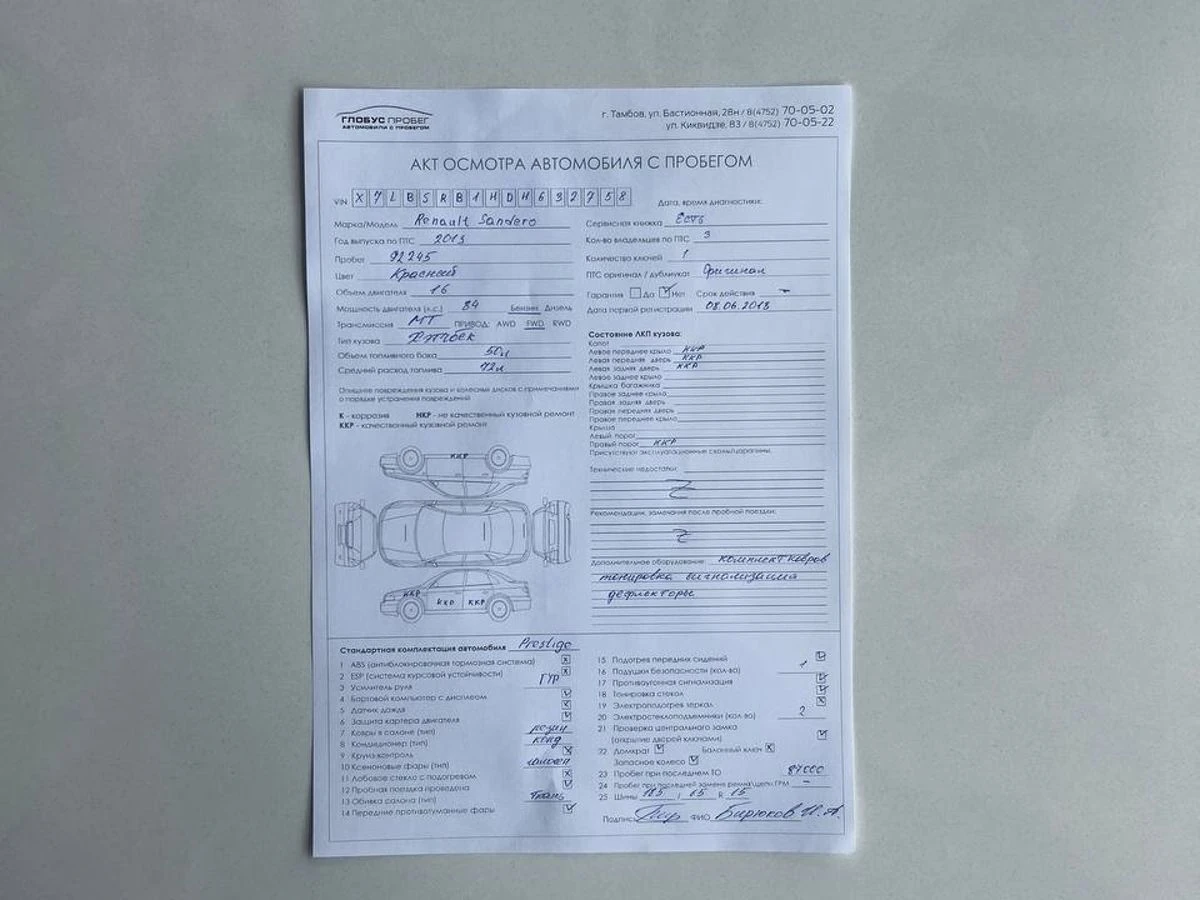 ГЛОБУС ПРОБЕГ
АВТОМОБИЛИ С ПРОБЕГОМ
г. Тамбов, ул. Бастионная, 28н / 8(4752) 70-05-02
ул. Киквидзе, 83 / 8(4752) 70-05-22
АКТ ОСМОТРА АВТОМОБИЛЯ С ПРОБЕГОМ
VIN X7LB5RB1HDH632758
Марка/Модель Renault Sandero
Год выпуска по ПТС 2013
Пробег 92245
Цвет Красный
Объем двигателя 16
Мощность двигателя (л.с.) 84 Бензин Дизель
Трансмиссия МТ ПРИВОД: AWD FWD RWD
Тип кузова Хэтчбек
Объем топливного бака 50л
Средний расход топлива 72л
Опишите повреждения кузова и колесных дисков с примечаниями
о порядке устранения повреждений
К - коррозия НКР - не качественный кузовной ремонт
ККР - качественный кузовной ремонт
ККР
ККР
ККР ККР
Дата, время диагностики:
Сервисная книжка Есть
Кол-во владельцев по ПТС 3
Количество ключей 1
ПТС оригинал / дубликат Оригинал
Гарантия Да Нет Срок действия -
Дата первой регистрации 08.06.2013
Состояние ЛКП кузова:
Капот
Левое переднее крыло ККР
Левая передняя дверь ККР
Левая задняя дверь ККР
Левое заднее крыло
Крышка багажника
Правое заднее крыло
Правая задняя дверь
Правая передняя дверь
Правое переднее крыло
Крыша
Левый порог
Правый порог ККР
Присутствуют эксплуатационные сколы/царапины.
Технические недостатки:
Z
Рекомендации, замечания после пробной поездки:
Z
Дополнительное оборудование: комплект ковров
тонировка сигнализация
дефлекторы
Стандартная комплектация автомобиля Prestige
1 ABS (антиблокировочная тормозная система)
2 ESP (система курсовой устойчивости)
3 Усилитель руля ГУР
4 Бортовой компьютер с дисплеем
5 Датчик дождя
6 Защита картера двигателя
7 Ковры в салоне (тип) резин
8 Кондиционер (тип) конд
9 Круиз-контроль
10 Ксеноновые фары (тип)
11 Лобовое стекло с подогревом
12 Пробная поездка проведена
13 Обивка салона (тип) Ткань
14 Передние противотуманные фары
15 Подогрев передних сидений
16 Подушки безопасности (кол-во) 1
17 Противоугонная сигнализация
18 Тонировка стекол
19 Электроподогрев зеркал
20 Электростеклоподъемники (кол-во) 2
21 Проверка центрального замка
(открытие дверей ключами)
22 Домкрат Балонный ключ
Запасное колесо
23 Пробег при последнем ТО 87000
24 Пробег при последней замене ремня/цепи ГРМ -
25 Шины 185 / 65 R 15
Подпись ФИО Бирюков И.А.